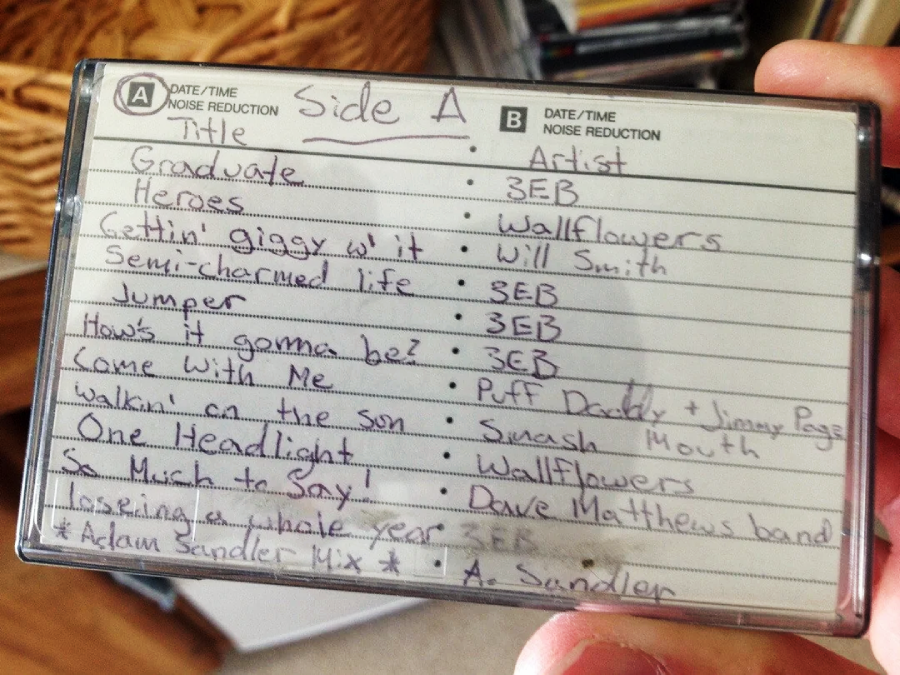 A DATE/TIME NOISE REDUCTION Side A B DATE/TIME NOISE REDUCTION
Title • Artist
Graduate • 3EB
Heroes • Wallflowers
Gettin' giggy w' it • Will Smith
Semi-charmed life • 3EB
Jumper • 3EB
How's it gonna be? • 3EB
Come With Me • Puff Daddy + Jimmy Page
Walkin' on the son • Smash Mouth
One Headlight • Wallflowers
So Much to Say! • Dave Matthews band
loseing a whole year 3EB
*Adam Sandler Mix * • A. Sandler